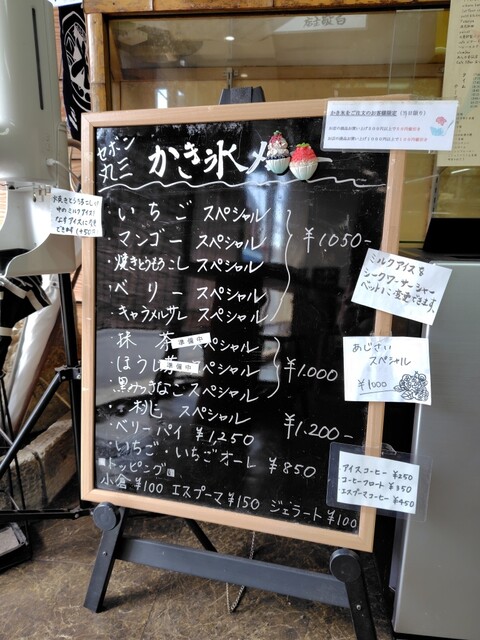 セボン
丸二
かき氷メ
・いちご スペシャル
・マンゴー スペシャル
・焼きとうもろこし スペシャル
・ベリー スペシャル
・キャラメルサレ スペシャル
¥1,050-
・抹茶 スペシャル
準備中
・ほうじ茶 スペシャル
準備中
・黒みつきなこ スペシャル
¥1,000-
・桃 スペシャル
¥1,200-
・ベリーパイ ¥1,250
・いちご・いちごオーレ ¥850
トッピング
小倉 ¥100 エスプーマ ¥150 ジェラート ¥100
かき氷をご注文のお客様限定
ミルクアイスを
シークワーサーシャー
ベットに変更できます。
あじさい
スペシャル
¥1000
アイスコーヒー ¥250
コーヒーフロート ¥350
エスプーマコーヒー ¥450
中のミルクアイス
できます(+50円)